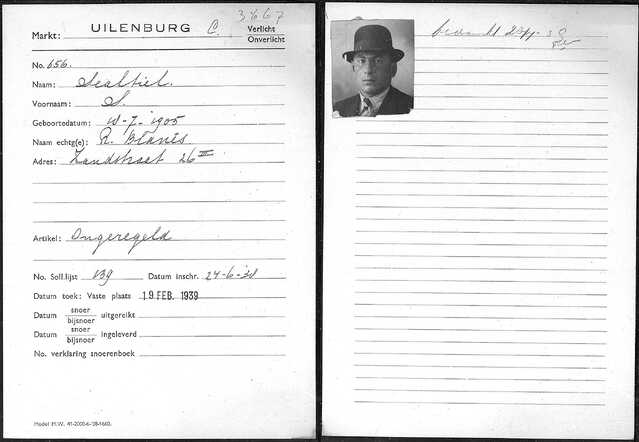 3667
Markt: UILENBURG C. Verlicht
Onverlicht
No. 656.
Naam: Sealtiel.
Voornaam: S.
Geboortedatum: 10-7-1905
Naam echtg(e): R. Blanis
Adres: Zandstraat 26 III
Artikel: Ongeregeld
No. Soll.lijst 139 Datum inschr. 24-6-31
Datum toek: Vaste plaats 19 FEB. 1939
Datum snoer uitgereikt
bijsnoer
Datum snoer ingeleverd
bijsnoer
No. verklaring snoerenboek
Model M.W. 41-2000-6-'38-1660.